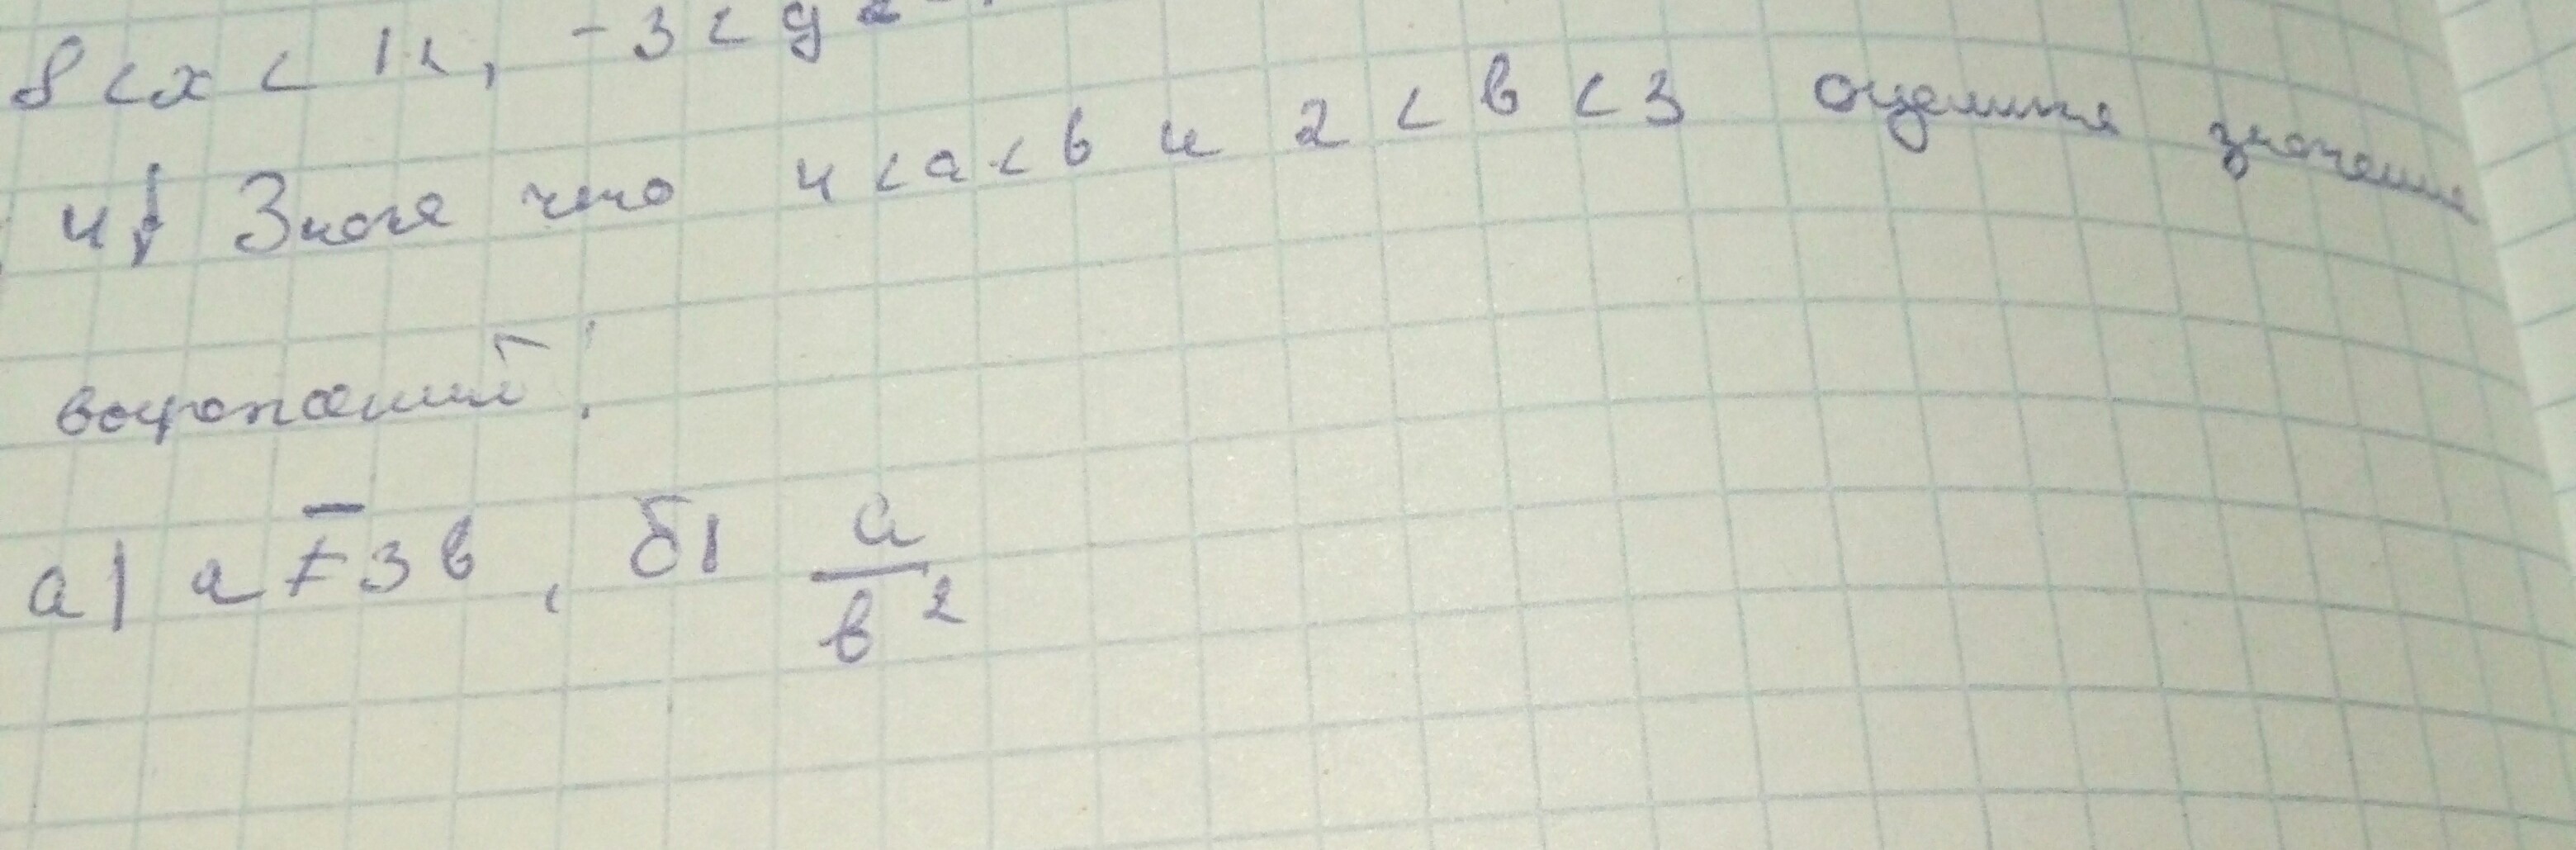 8 < x < 12, -3 < y <
4) Зная что 4 < a < 6 и 2 < в < 3 оцените значения
выражений:
а) a - 3 в, б) a/в²